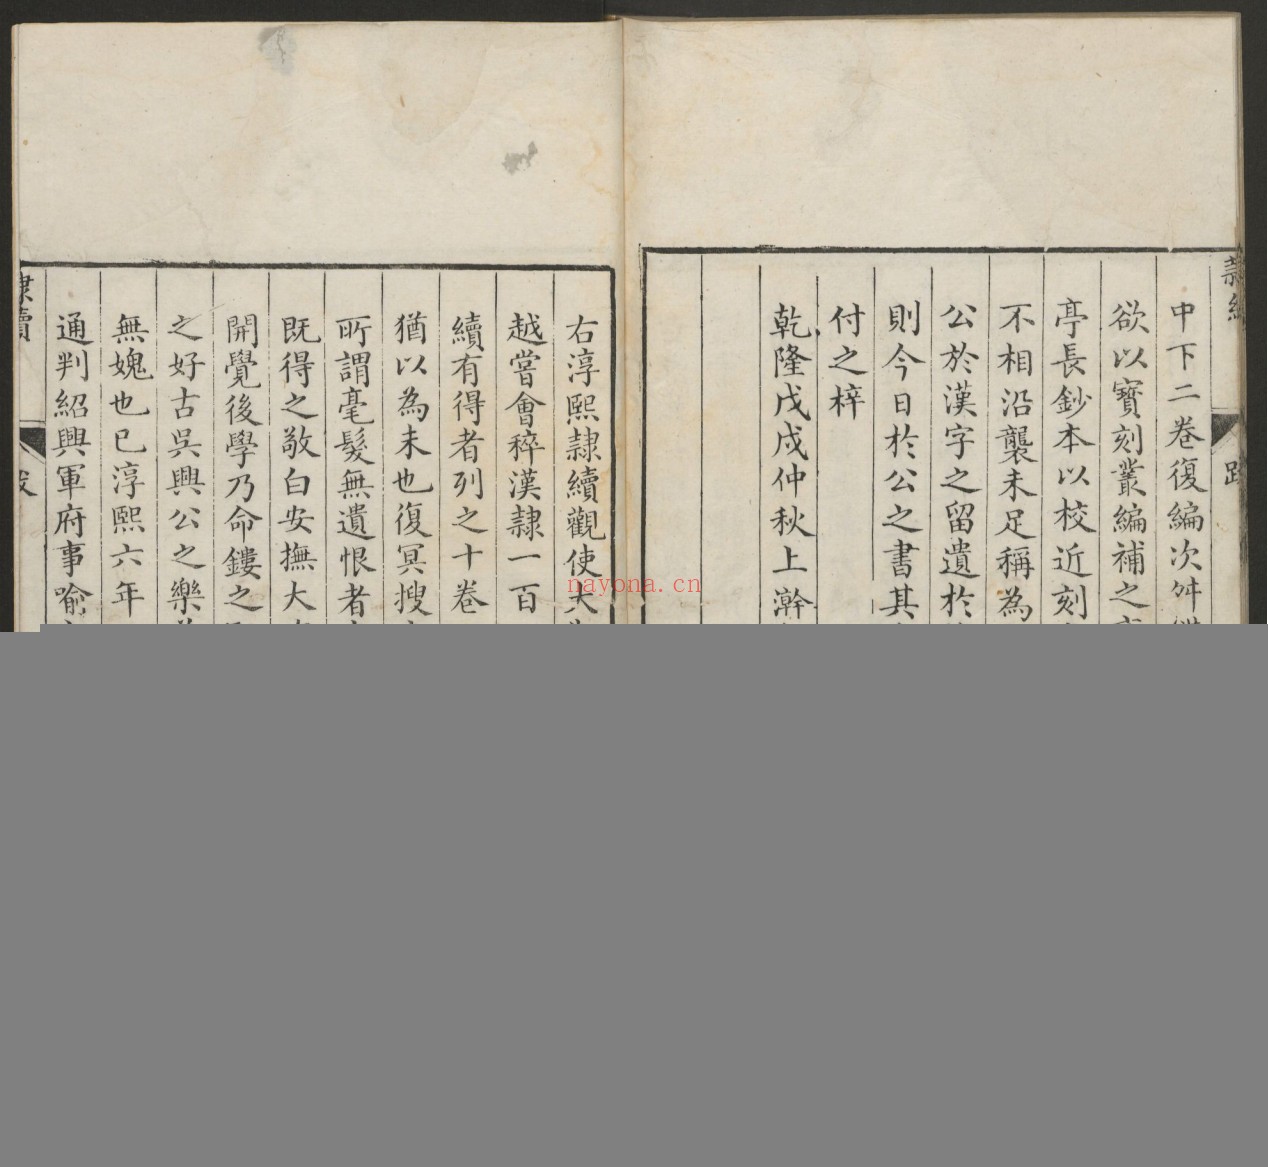 中下二卷復編次舛
欲以寶刻叢編補之
亭長鈔本以校近刻
不相沿襲未足稱為
公於漢字之留遺於
則今日於公之書其
付之梓
乾隆戊戌仲秋上澣
右淳熙隷續觀使大
越嘗會稡漢隷一百
續有得者列之十卷
猶以為未也復冥搜
所謂毫髮無遺恨者
既得之敬白安撫大
開覺後學乃命鏤之
之好古吳興公之樂
無媿也已淳熙六年
通判紹興軍府事喻
隷續
nayona.cn